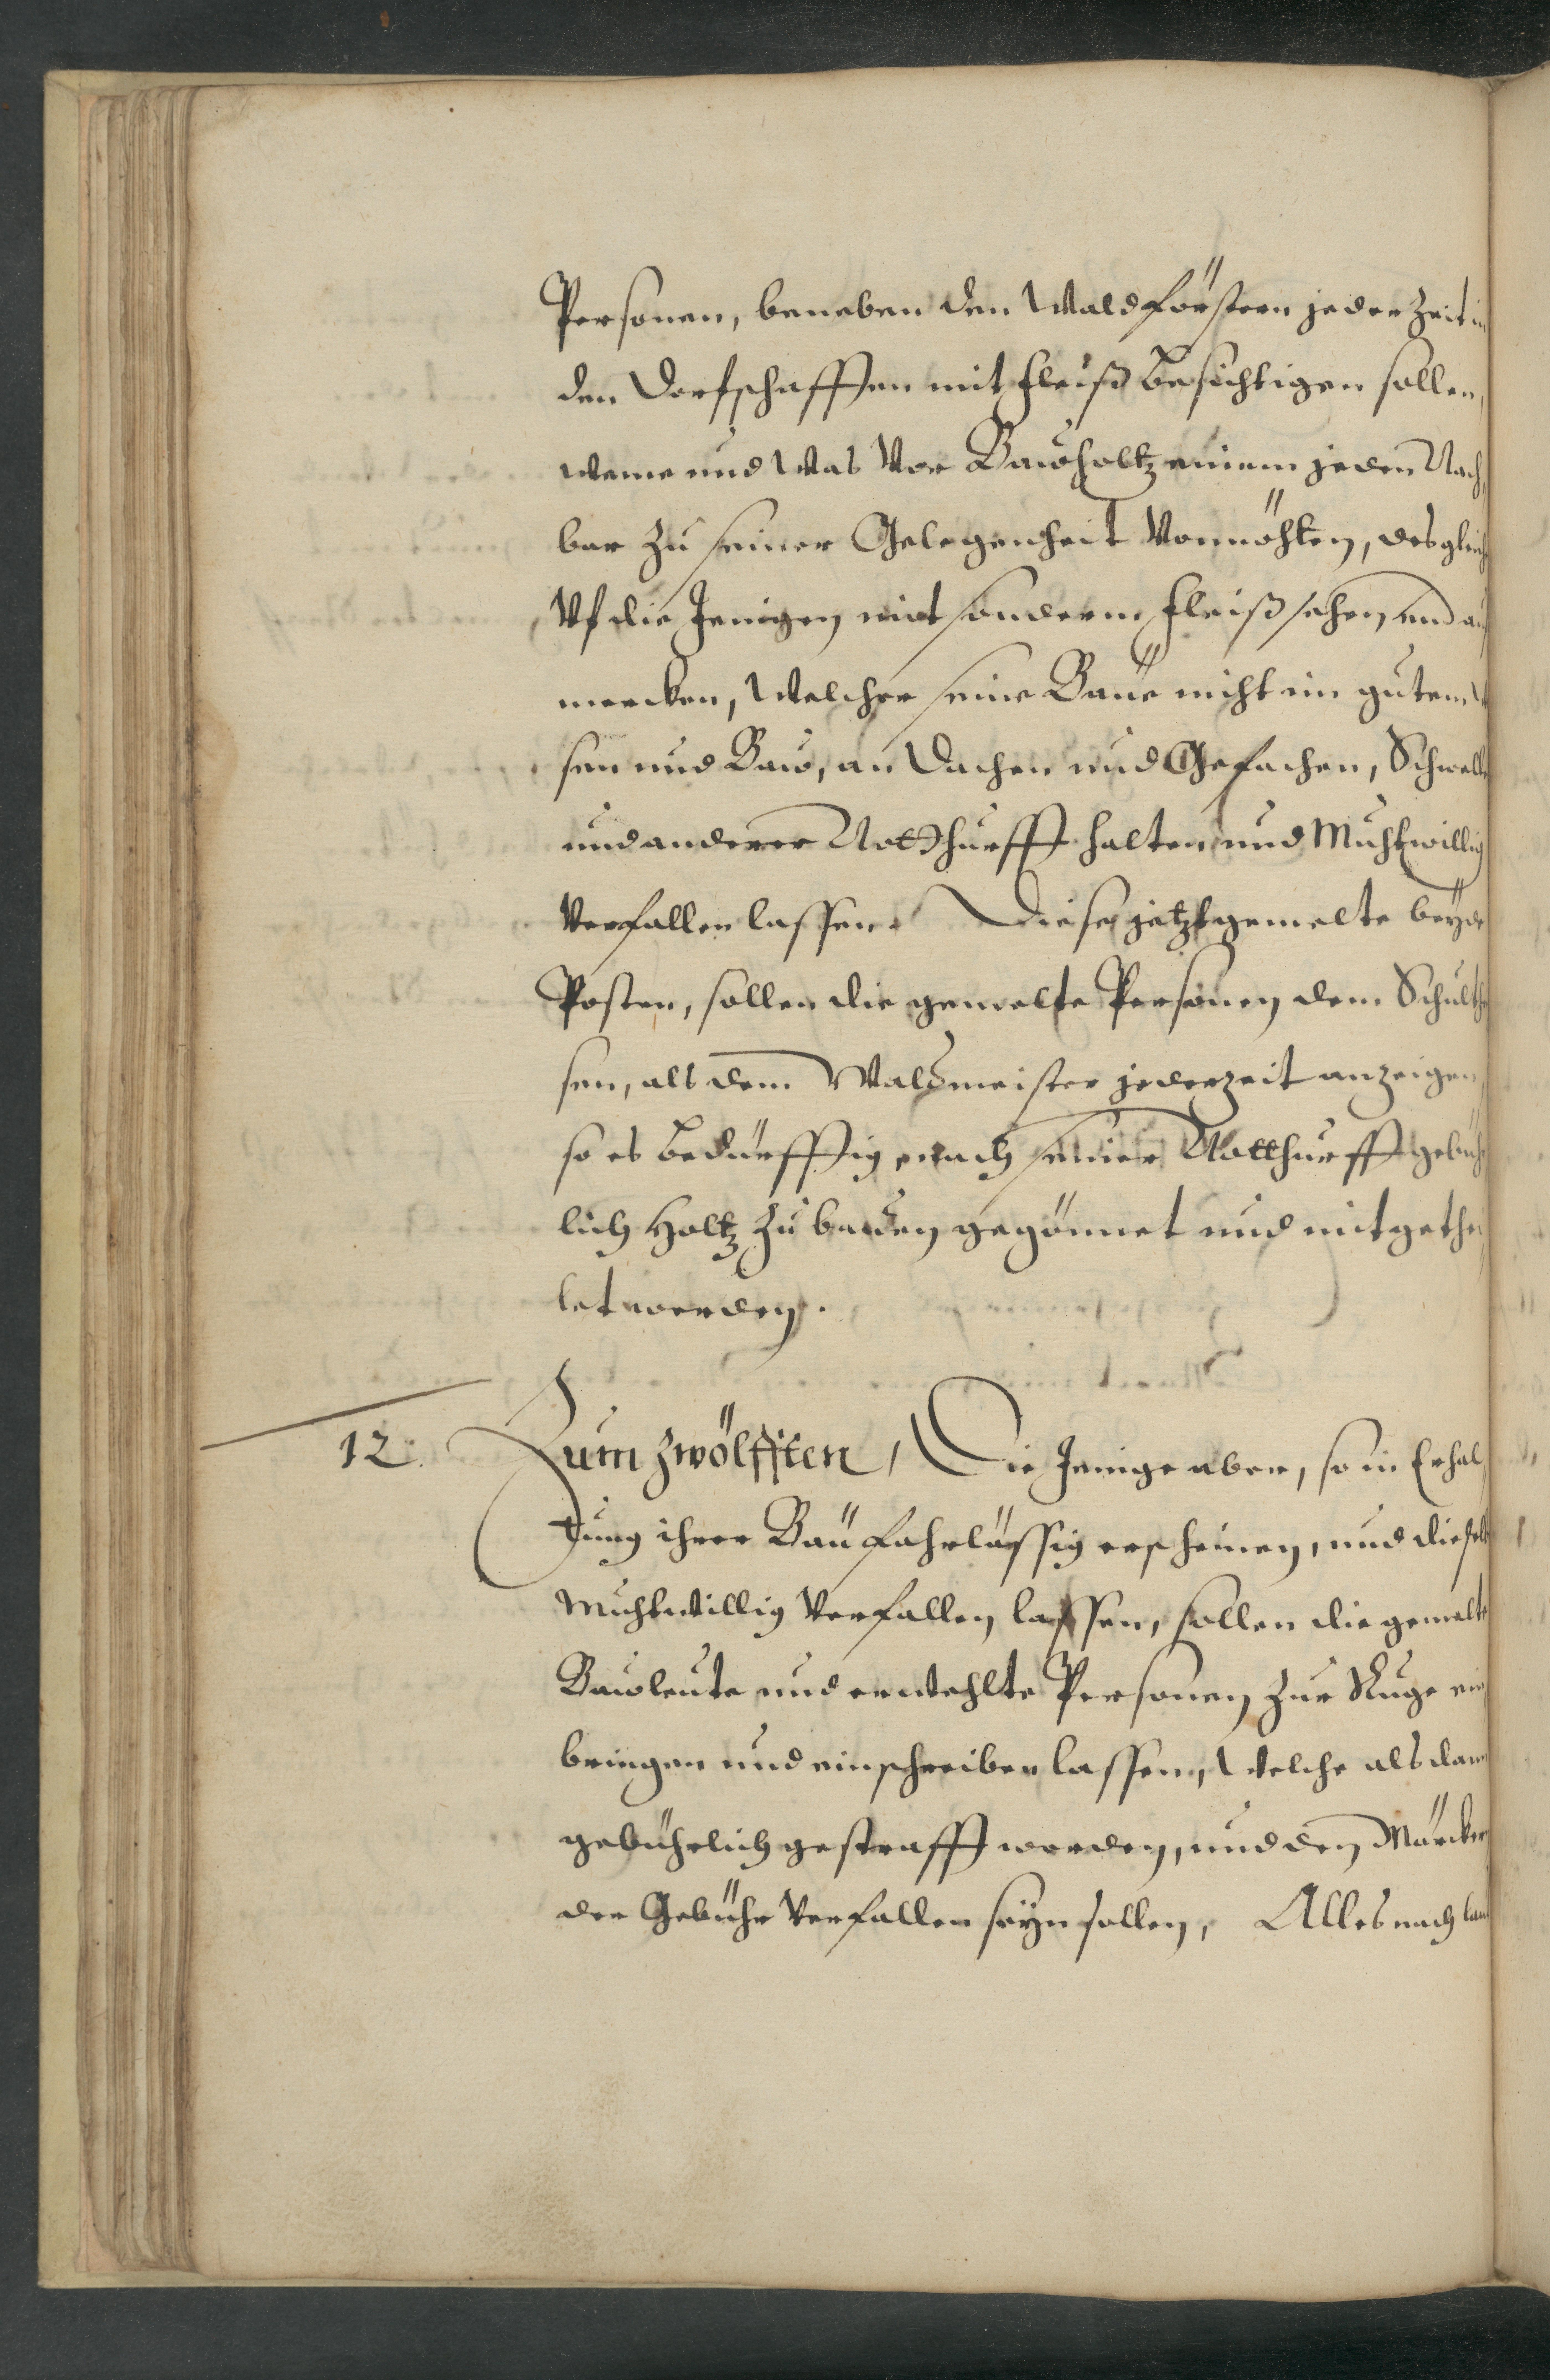 Personen, beneben den Waldförstern jeder Zeit in
den Dorfschafften mit Fleiß besichtigen sollen,
weme und was vor Bawholtz einem jeden Nach
bar zu seiner Gelegenheit vonnöhten, desgleich
Vf die Jenigen mit sonderm Fleiß sehen und auf
mercken, welcher seine Baüe nicht in gutem
sen und Baw, an Dachen und Gefachen, Schwell
und anderer Notthurfft halten und Muhtwillig
verfallen lassen. Diese jetztgemelte beÿde
Posten, sollen die gemelte Personen dem Schulth
sen, als dem Waldmeister jederzeit anzeigen,
so es bedürfftig nach seiner Notthurfft gebühr
lich Holtz zu bawen gegönnet und mitgethei
let werden.
12. Zum Zwölfften, Die Jenige aber, so in Erhal
tung ihrer Baü fahrlässig erscheinen, und dieselb
Muhtwillig verfallen lassen, sollen die gemelte
Bawleute und erwehlte Personen zur Ruge ein
bringen und einschreiben lassen, welche alsdann
gebührlich gestrafft werden, und den Märckern
der Gebühr verfallen seÿn sollen, Alles nach laut